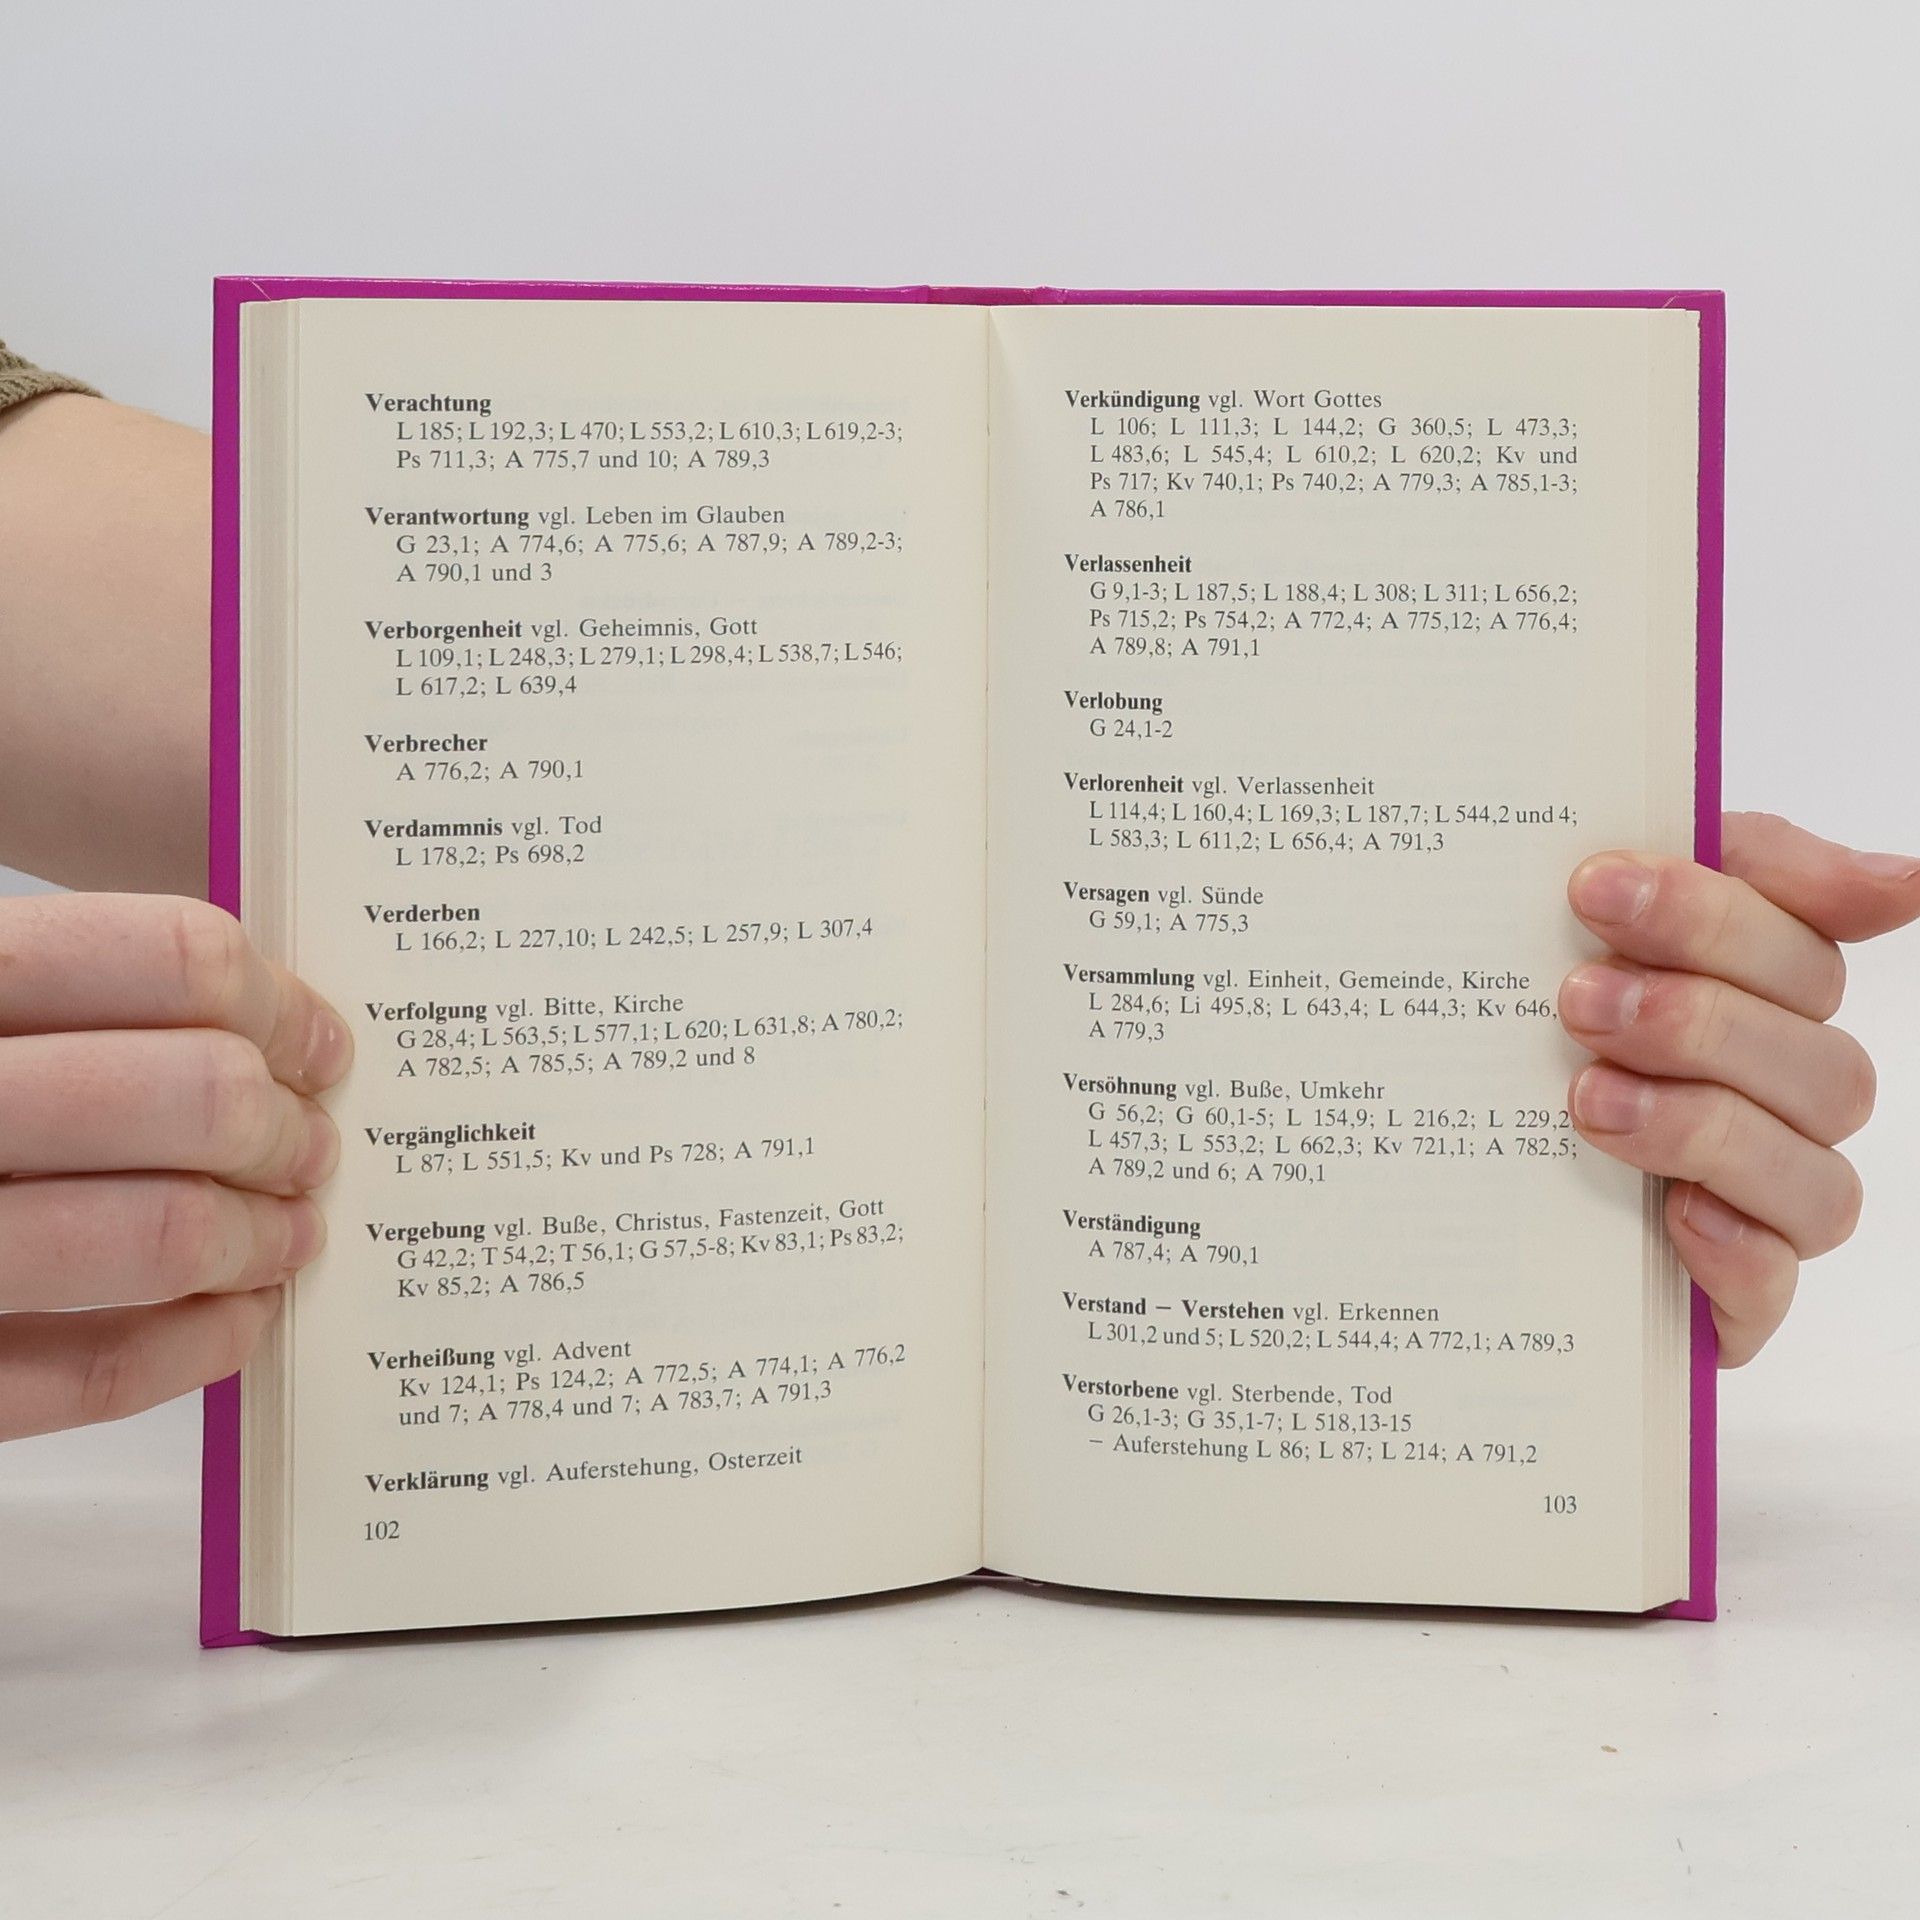 Verachtung
L 185; L 192,3; L 470; L 553,2; L 610,3; L 619,2-3;
Ps 711,3; A 775,7 und 10; A 789,3
Verantwortung vgl. Leben im Glauben
G 23,1; A 774,6; A 775,6; A 787,9; A 789,2-3;
A 790,1 und 3
Verborgenheit vgl. Geheimnis, Gott
L 109,1; L 248,3; L 279,1; L 298,4; L 538,7; L 546;
L 617,2; L 639,4
Verbrecher
A 776,2; A 790,1
Verdammnis vgl. Tod
L 178,2; Ps 698,2
Verderben
L 166,2; L 227,10; L 242,5; L 257,9; L 307,4
Verfolgung vgl. Bitte, Kirche
G 28,4; L 563,5; L 577,1; L 620; L 631,8; A 780,2;
A 782,5; A 785,5; A 789,2 und 8
Vergänglichkeit
L 87; L 551,5; Kv und Ps 728; A 791,1
Vergebung vgl. Buße, Christus, Fastenzeit, Gott
G 42,2; T 54,2; T 56,1; G 57,5-8; Kv 83,1; Ps 83,2;
Kv 85,2; A 786,5
Verheißung vgl. Advent
Kv 124,1; Ps 124,2; A 772,5; A 774,1; A 776,2
und 7; A 778,4 und 7; A 783,7; A 791,3
Verklärung vgl. Auferstehung, Osterzeit
102
Verkündigung vgl. Wort Gottes
L 106; L 111,3; L 144,2; G 360,5; L 473,3;
L 483,6; L 545,4; L 610,2; L 620,2; Kv und
Ps 717; Kv 740,1; Ps 740,2; A 779,3; A 785,1-3;
A 786,1
Verlassenheit
G 9,1-3; L 187,5; L 188,4; L 308; L 311; L 656,2;
Ps 715,2; Ps 754,2; A 772,4; A 775,12; A 776,4;
A 789,8; A 791,1
Verlobung
G 24,1-2
Verlorenheit vgl. Verlassenheit
L 114,4; L 160,4; L 169,3; L 187,7; L 544,2 und 4;
L 583,3; L 611,2; L 656,4; A 791,3
Versagen vgl. Sünde
G 59,1; A 775,3
Versammlung vgl. Einheit, Gemeinde, Kirche
L 284,6; Li 495,8; L 643,4; L 644,3; Kv 646,
A 779,3
Versöhnung vgl. Buße, Umkehr
G 56,2; G 60,1-5; L 154,9; L 216,2; L 229,2;
L 457,3; L 553,2; L 662,3; Kv 721,1; A 782,5;
A 789,2 und 6; A 790,1
Verständigung
A 787,4; A 790,1
Verstand – Verstehen vgl. Erkennen
L 301,2 und 5; L 520,2; L 544,4; A 772,1; A 789,3
Verstorbene vgl. Sterbende, Tod
G 26,1-3; G 35,1-7; L 518,13-15
– Auferstehung L 86; L 87; L 214; A 791,2
103